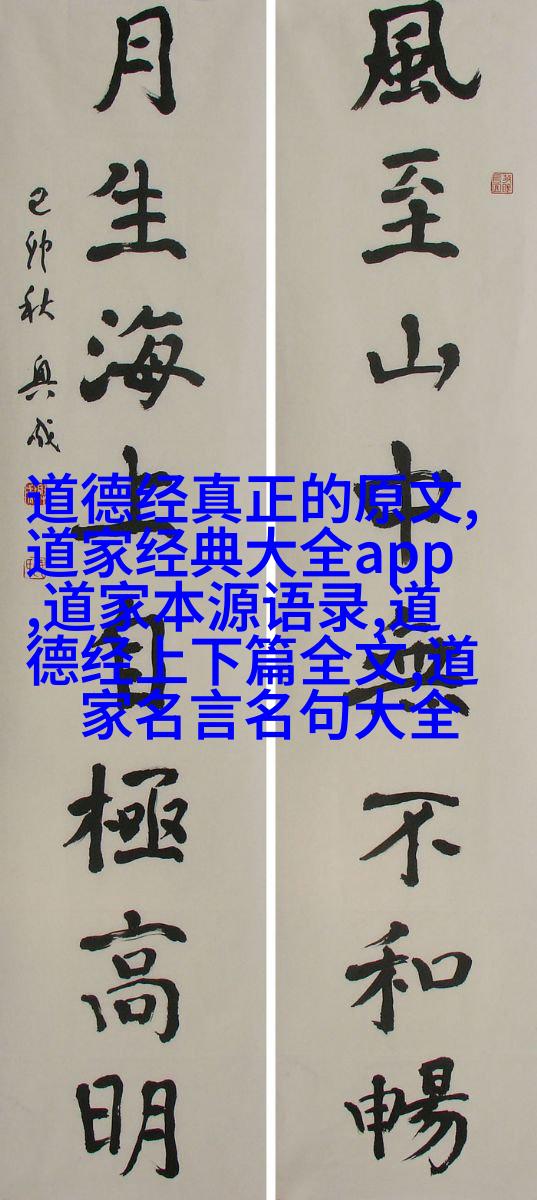 風至山中無不和暢
月生海上自極高明
己卯秋 興成
道德经真正的原文,
道家经典大全app
,道家本源语录,道
德经上下篇全文,道
家名言名句大全